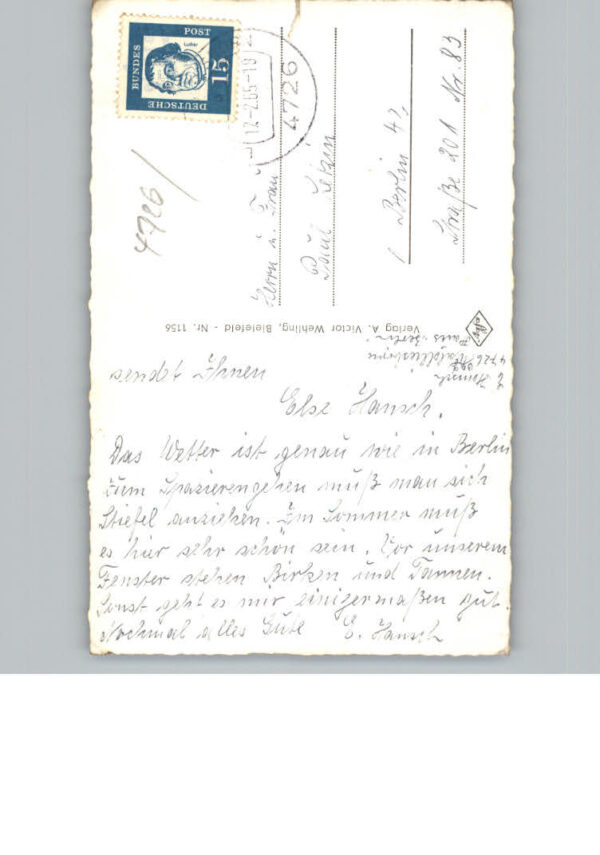 DEUTSCHE
BUNDES
POST
15
Luther
12.2.65-18
4726
4726
Herrn u. Frau
Paul
1 Berlin 42
Straße 201 Nr. 83
Verlag A. Victor Wehling, Bielefeld - Nr. 1156
E. Hansch
4726
Haus Berlin
sendet Ihnen
Else Hansch.
Das Wetter ist genau wie in Berlin
zum Spazierengehen muß man sich
Stiefel anziehen. Im Sommer muß
es hier sehr schön sein. Vor unserem
Fenster stehen Birken und Tannen.
Sonst geht es mir einigermaßen gut.
Nochmal alles Gute E. Hansch